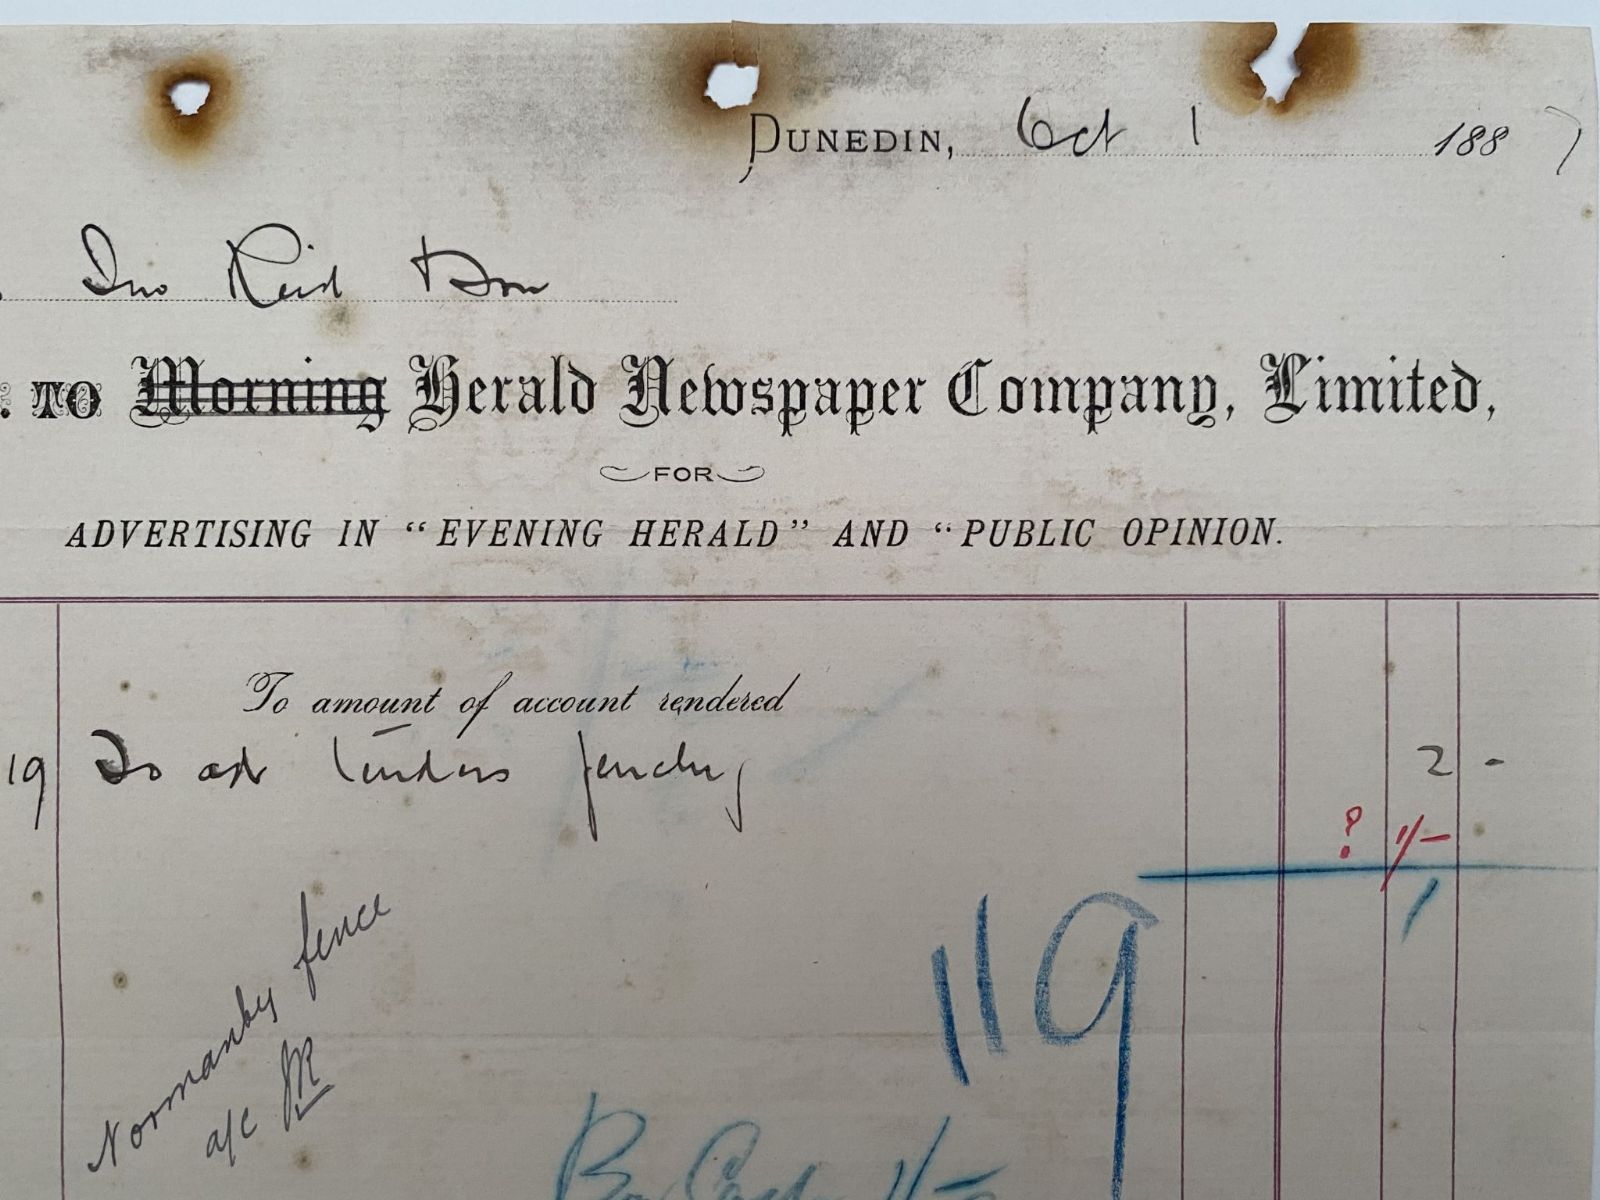 DUNEDIN, Oct 1 1887
Jno Reid & Son
. TO Morning Herald Newspaper Company, Limited,
FOR
ADVERTISING IN "EVENING HERALD" AND "PUBLIC OPINION.
To amount of account rendered
19 To ad tenders fencing 2 -
? 1/-
1
119
Normanby fence
a/c JR
By Cash 1/-